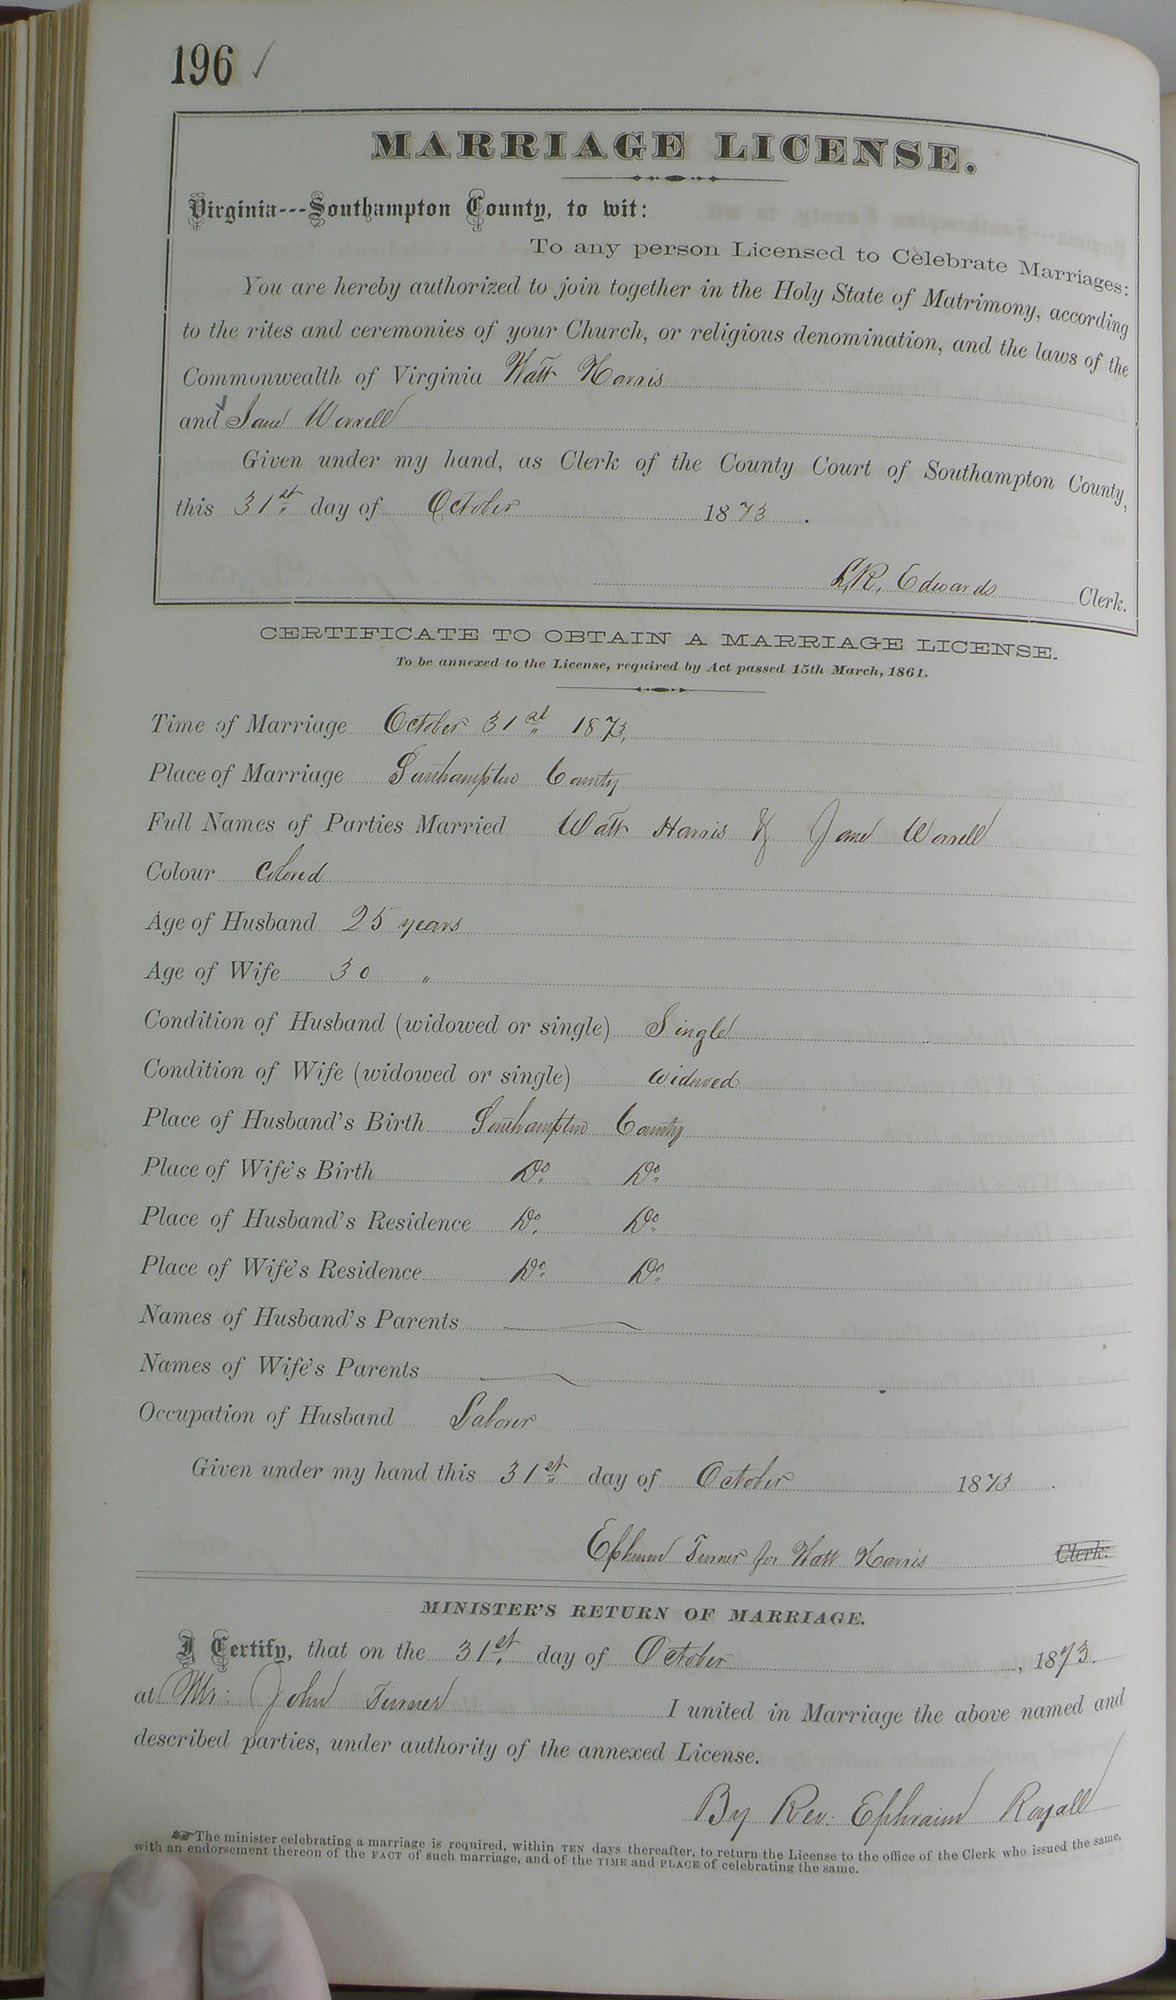 196 ✓
MARRIAGE LICENSE.
Virginia---Southampton County, to wit:
To any person Licensed to Celebrate Marriages:
You are hereby authorized to join together in the Holy State of Matrimony, according
to the rites and ceremonies of your Church, or religious denomination, and the laws of the
Commonwealth of Virginia Watt Harris
and Jane Worrell
Given under my hand, as Clerk of the County Court of Southampton County,
this 31st day of October 1873.
L.R. Edwards Clerk.
CERTIFICATE TO OBTAIN A MARRIAGE LICENSE.
To be annexed to the License, required by Act passed 15th March, 1861.
Time of Marriage October 31st 1873.
Place of Marriage Southampton County
Full Names of Parties Married Watt Harris & Jane Worrell
Colour Colored
Age of Husband 25 years
Age of Wife 30 "
Condition of Husband (widowed or single) Single
Condition of Wife (widowed or single) widowed
Place of Husband's Birth Southampton County
Place of Wife's Birth Do. Do.
Place of Husband's Residence Do. Do.
Place of Wife's Residence Do. Do.
Names of Husband's Parents
Names of Wife's Parents
Occupation of Husband Laborer
Given under my hand this 31st day of October 1873.
Ephraim Turner for Watt Harris Clerk.
MINISTER'S RETURN OF MARRIAGE.
I Certify, that on the 31st day of October, 1873.
at Mr: John Turner I united in Marriage the above named and
described parties, under authority of the annexed License.
By Rev. Ephraim Royall
☞ The minister celebrating a marriage is required, within TEN days thereafter, to return the License to the office of the Clerk who issued the same,
with an endorsement thereon of the FACT of such marriage, and of the TIME and PLACE of celebrating the same.